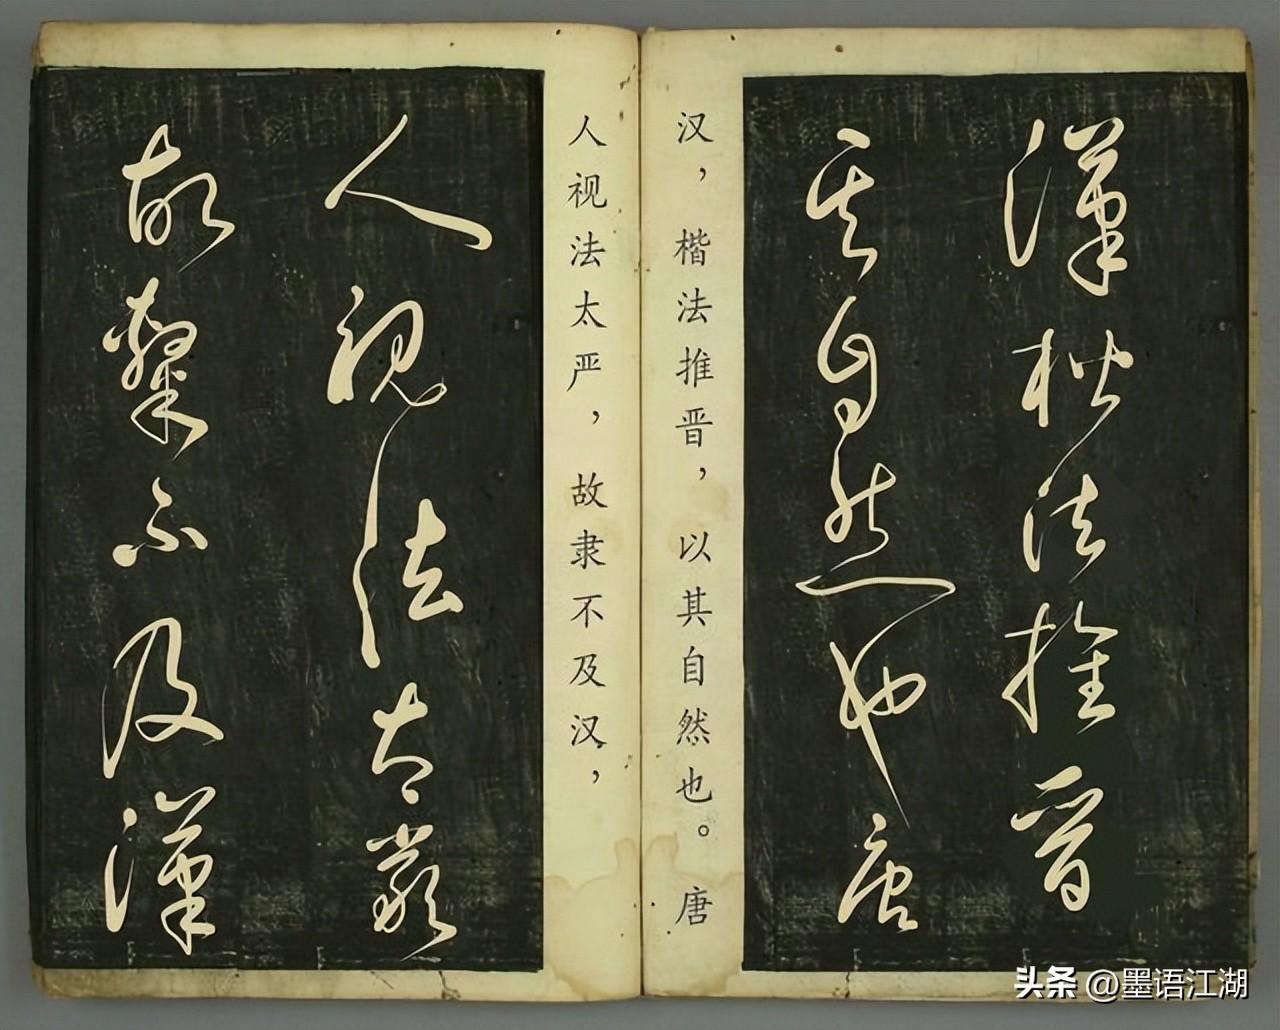 漢楷法推晉
其自然也唐
汉，楷法推晋，以其自然也。唐
人视法太严，故隶不及汉，
人視法太嚴
故隸不及漢
头条 @墨语江湖